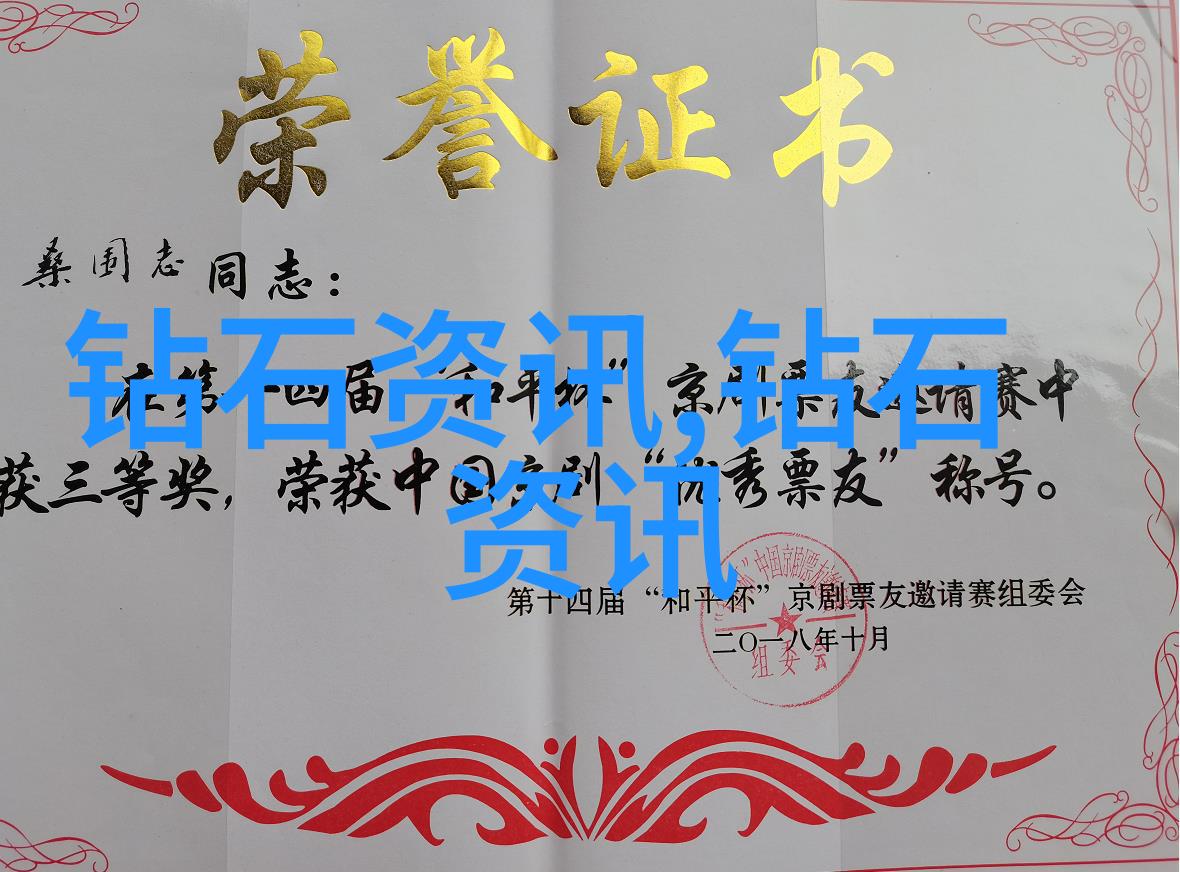 荣誉证书
桑国志同志：
在第十四届“和平杯”京剧票友邀请赛中
获三等奖，荣获中国京剧“优秀票友”称号。
钻石资讯,钻石
资讯
第十四届“和平杯”京剧票友邀请赛组委会
二〇一八年十月
组委会